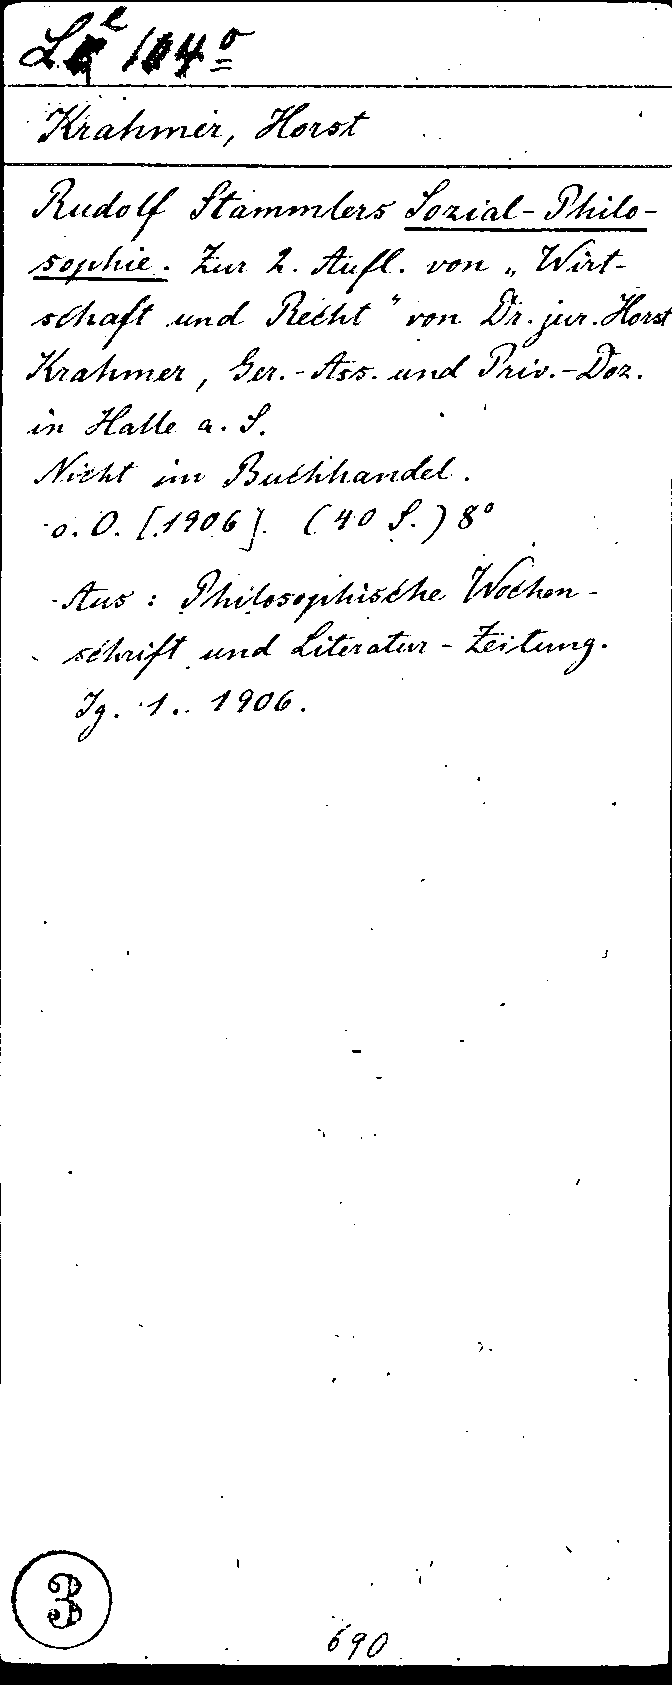 104º
Krahmer, Horst
Rudolf Stammlers Sozial-Philo-
sophie. Zur 2. Aufl. von „Wirt-
schaft und Recht" von Dr. jur. Horst
Krahmer, Ger.-Ass. und Priv.-Doz.
in Halle a. S.
Nicht im Buchhandel.
o. O. [1906]. (40 S.) 8º
Aus: Philosophische Wochen-
schrift und Literatur-Zeitung.
Jg. 1. 1906.
3
690